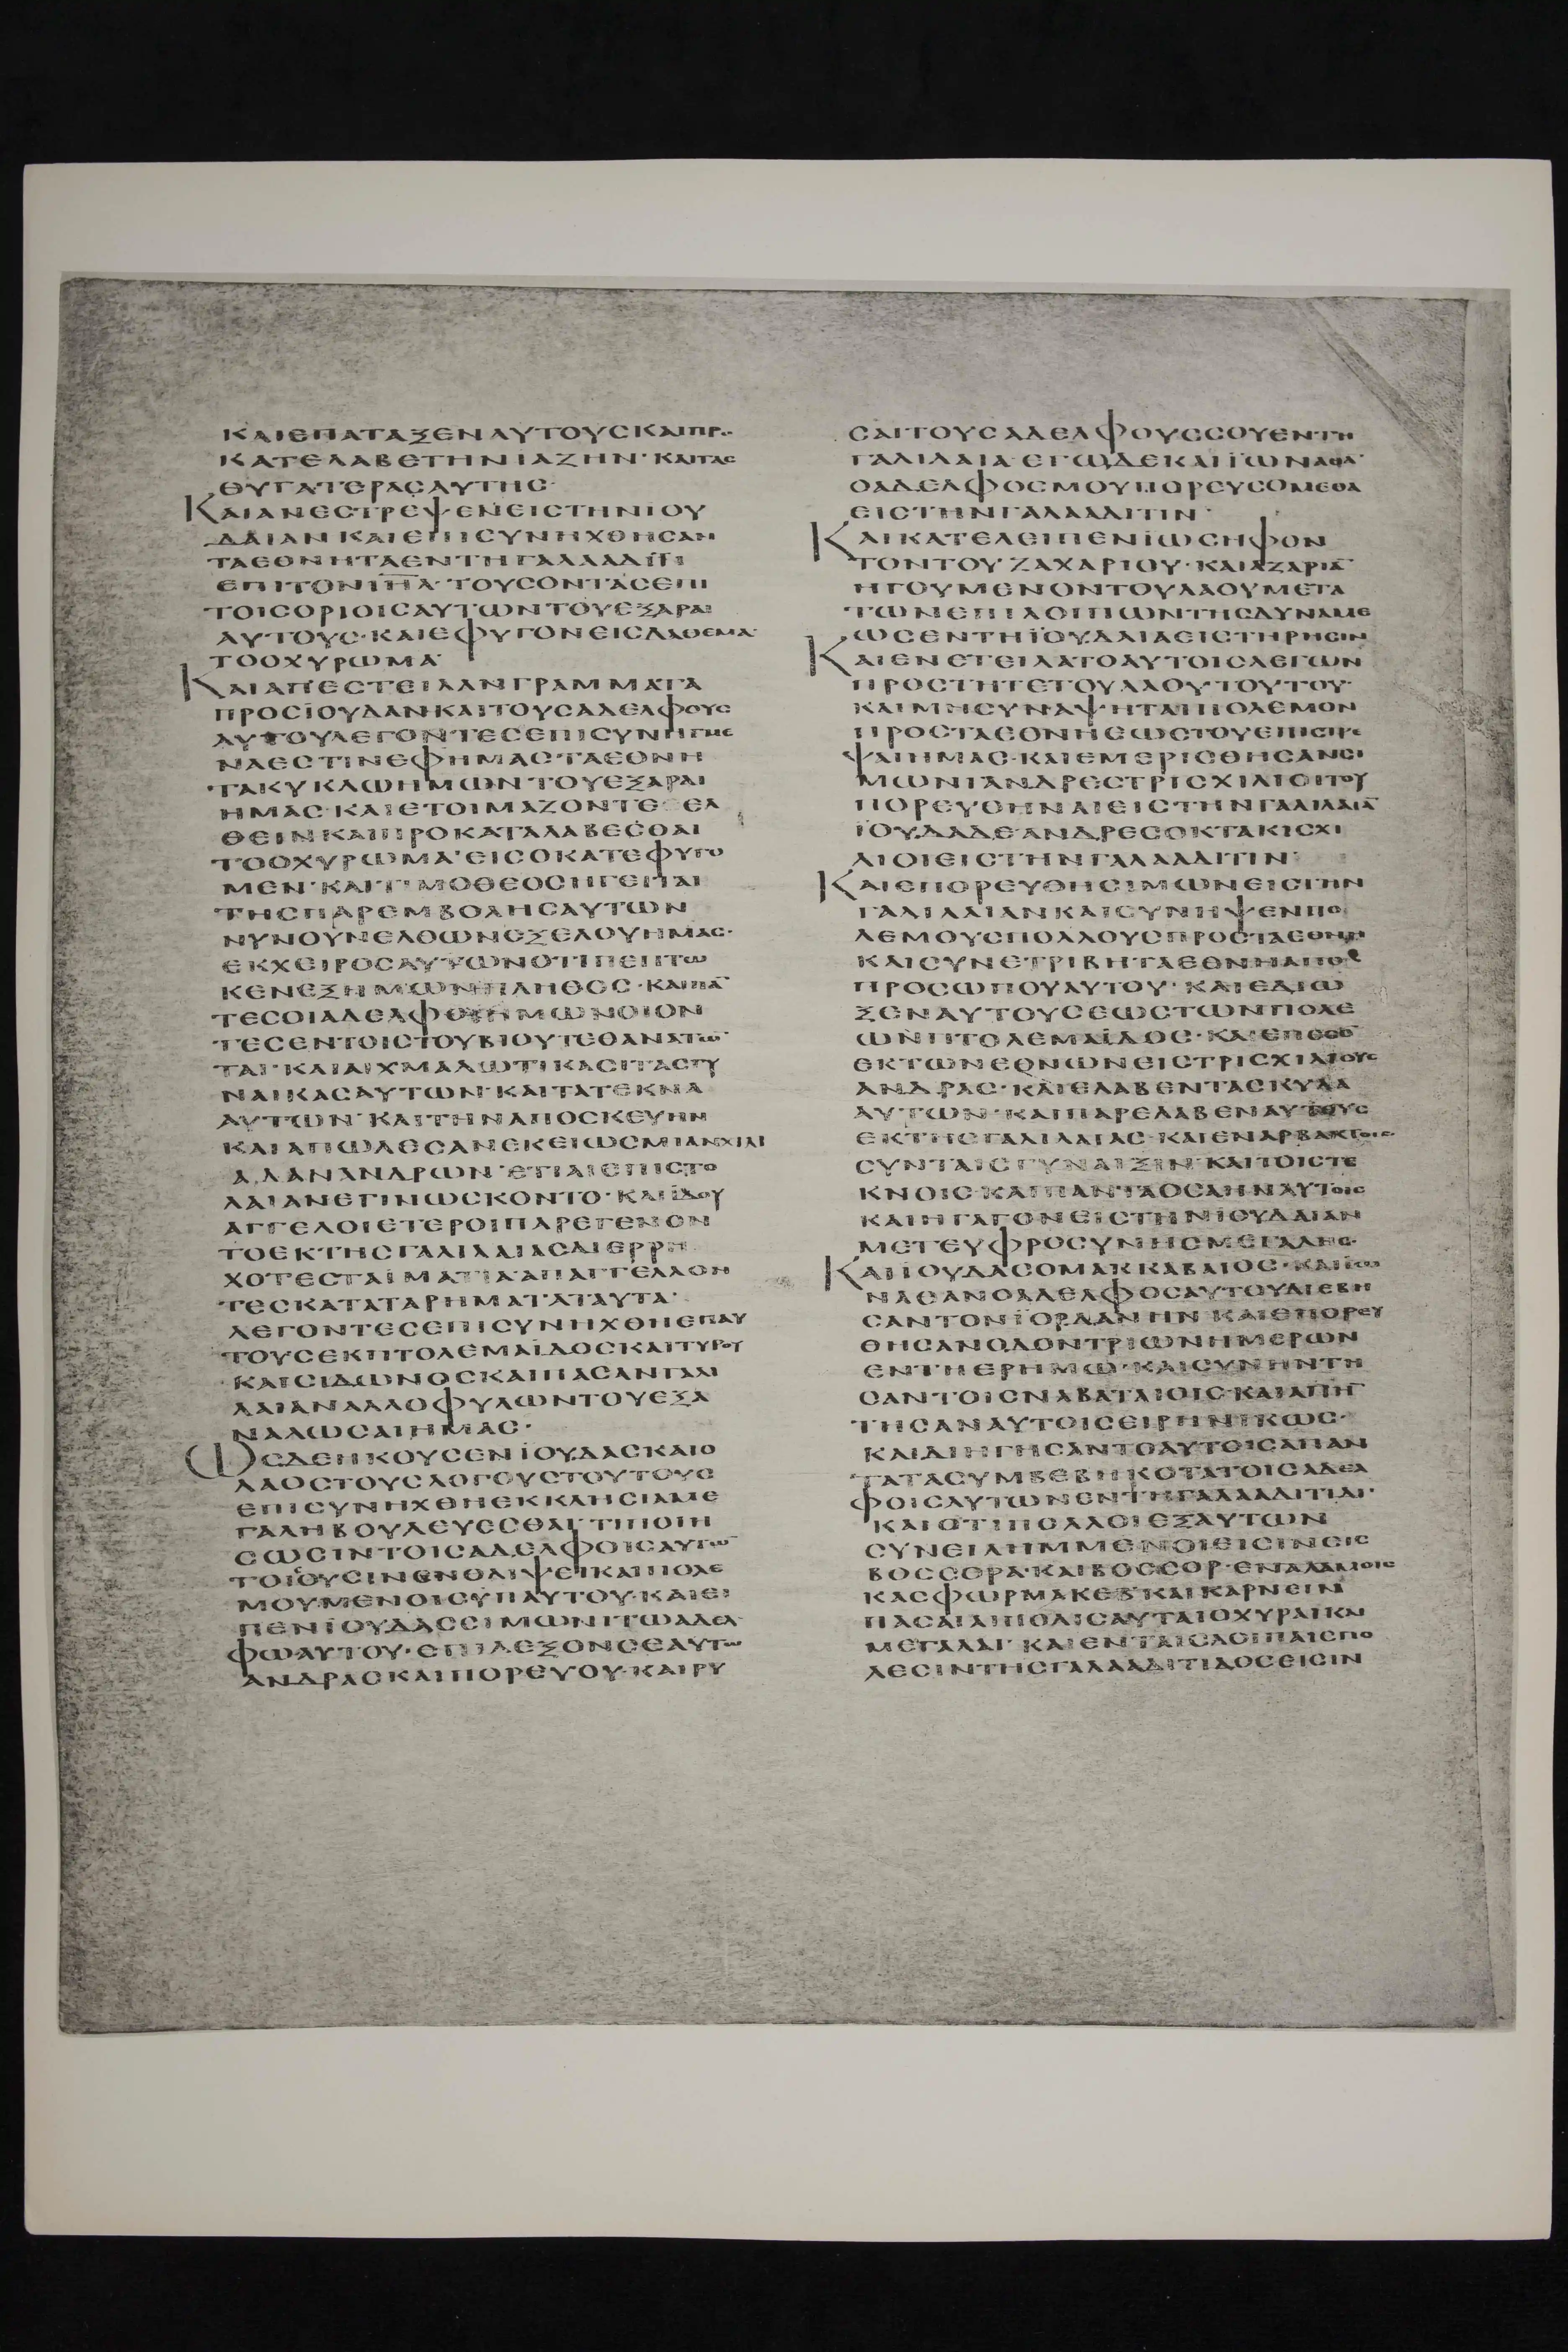 ΚΑΙΕΠΑΤΑΞΕΝΑΥΤΟΥΣΚΑΙΠΡΟ
ΚΑΤΕΛΑΒΕΤΗΝΙΑΖΗΝ· ΚΑΙΤΑΣ
ΘΥΓΑΤΕΡΑΣΑΥΤΗΣ·
ΚΑΙΑΝΕΣΤΡΕΨΕΝΕΙΣΤΗΝΙΟΥ
ΔΑΙΑΝ ΚΑΙΕΠΙΣΥΝΗΧΘΗΣΑΝ
ΤΑΕΘΝΗΤΑΕΝΤΗΓΑΛΑΑΔΙΤΙ
ΕΠΙΤΟΝΙΗΛ· ΤΟΥΣΟΝΤΑΣΕΠΙ
ΤΟΙΣΟΡΙΟΙΣΑΥΤΩΝΤΟΥΕΞΑΡΑΙ
ΑΥΤΟΥΣ· ΚΑΙΕΦΥΓΟΝΕΙΣΔΑΘΕΜΑ·
ΤΟΟΧΥΡΩΜΑ·
ΚΑΙΑΠΕΣΤΕΙΛΑΝΓΡΑΜΜΑΤΑ
ΠΡΟΣΪΟΥΔΑΝ·ΚΑΙΤΟΥΣΑΔΕΛΦΟΥΣ
ΑΥΤΟΥΛΕΓΟΝΤΕΣΕΠΙΣΥΝΗΓΜΕ
ΝΑΕΣΤΙΝΕΦΗΜΑΣ·ΤΑΕΘΝΗ
ΤΑΚΥΚΛΩΗΜΩΝ·ΤΟΥΕΞΑΡΑΙ
ΗΜΑΣ· ΚΑΙΕΤΟΙΜΑΖΟΝΤΕΣΕΛ
ΘΕΙΝΚΑΙΠΡΟΚΑΤΑΛΑΒΕΣΘΑΙ
ΤΟΟΧΥΡΩΜΑ·ΕΙΣΟΚΑΤΕΦΥΓΟ
ΜΕΝ· ΚΑΙΤΙΜΟΘΕΟΣΗΓΕΙΤΑΙ
ΤΗΣΠΑΡΕΜΒΟΛΗΣΑΥΤΩΝ
ΝΥΝΟΥΝΕΛΘΩΝΕΞΕΛΟΥΗΜΑΣ·
ΕΚΧΕΙΡΟΣΑΥΤΩΝΟΤΙΠΕΠΤΩ
ΚΕΝΕΞΗΜΩΝΠΛΗΘΟΣ· ΚΑΙΠΑ̅
ΤΕΣΟΙΑΔΕΛΦΟΙΗΜΩΝΟΙΟΝ
ΤΕΣΕΝΤΟΙΣΤΟΥΒΙΟΥΤΕΘΑΝΑΤΩ̅
ΤΑΙ· ΚΑΙΑΙΧΜΑΛΩΤΙΚΑΣΙΤΑΣΓΥ
ΝΑΙΚΑΣΑΥΤΩΝ· ΚΑΙΤΑΤΕΚΝΑ
ΑΥΤΩΝ· ΚΑΙΤΗΝΑΠΟΣΚΕΥΗΝ
ΚΑΙΑΠΩΛΕΣΑΝΕΚΕΙΩΣΜΙΑΝΧΙΛΙ
ΑΔΑΝΑΝΔΡΩΝ· ΕΤΙΑΙΕΠΙΣΤΟ
ΛΑΙΑΝΕΓΙΝΩΣΚΟΝΤΟ· ΚΑΙΪΔΟΥ
ΑΓΓΕΛΟΙΕΤΕΡΟΙΠΑΡΕΓΕΝΟΝ
ΤΟΕΚΤΗΣΓΑΛΙΛΑΙΑΣΔΙΕΡΡΗ
ΧΟΤΕΣΤΑΪΜΑΤΙΑ·ΑΠΑΓΓΕΛΛΟΝ
ΤΕΣΚΑΤΑΤΑΡΗΜΑΤΑΤΑΥΤΑ·
ΛΕΓΟΝΤΕΣΕΠΙΣΥΝΗΧΘΗΕΠΑΥ
ΤΟΥΣΕΚΠΤΟΛΕΜΑΪΔΟΣΚΑΙΤΥΡΟΥ
ΚΑΙΣΙΔΩΝΟΣΚΑΙΠΑΣΑΝΓΑΛΙ
ΛΑΙΑΝΑΛΛΟΦΥΛΩΝΤΟΥΕΞΑ
ΝΑΛΩΣΑΙΗΜΑΣ·
ΩΣΔΕΗΚΟΥΣΕΝΪΟΥΔΑΣΚΑΙΟ
ΛΑΟΣΤΟΥΣΛΟΓΟΥΣΤΟΥΤΟΥΣ
ΕΠΙΣΥΝΗΧΘΗΕΚΚΛΗΣΙΑΜΕ
ΓΑΛΗΒΟΥΛΕΥΣΣΘΑΙ·ΤΙΠΟΙΗ
ΣΩΣΙΝΤΟΙΣΑΔΕΛΦΟΙΣΑΥΤΩ̅
ΤΟΙΟΥΣΙΝΕΝΘΛΙΨΕΙΚΑΙΠΟΛΕ
ΜΟΥΜΕΝΟΙΣΥΠΑΥΤΟΥ·ΚΑΙΕΙ
ΠΕΝΪΟΥΔΑΣΣΙΜΩΝΙΤΩΑΔΕΛ
ΦΩΑΥΤΟΥ· ΕΠΙΛΕΞΟΝΣΕΑΥΤΩ
ΑΝΔΡΑΣΚΑΙΠΟΡΕΥΟΥ·ΚΑΙΡΥ
ΣΑΙΤΟΥΣΑΔΕΛΦΟΥΣΣΟΥΕΝΤΗ
ΓΑΛΙΛΑΙΑ·ΕΓΩΔΕΚΑΙΪΩΝΑΘΑ·
ΟΑΔΕΛΦΟΣΜΟΥΠΟΡΕΥΣΟΜΕΘΑ
ΕΙΣΤΗΝΓΑΛΑΑΔΙΤΙΝ·
ΚΑΙΚΑΤΕΛΕΙΠΕΝΪΩΣΗΦΟΝ
ΤΟΝΤΟΥΖΑΧΑΡΙΟΥ· ΚΑΙΑΖΑΡΙΑ̅
ΗΓΟΥΜΕΝΟΝΤΟΥΛΑΟΥΜΕΤΑ
ΤΩΝΕΠΙΛΟΙΠΩΝΤΗΣΔΥΝΑΜΕ
ΩΣΕΝΤΗΪΟΥΔΑΙΑΕΙΣΤΗΡΗΣΙΝ
ΚΑΙΕΝΕΤΕΙΛΑΤΟΑΥΤΟΙΣΛΕΓΩΝ
ΠΡΟΣΤΗΤΕΤΟΥΛΑΟΥΤΟΥΤΟΥ·
ΚΑΙΜΗΣΥΝΑΨΗΤΑΙΠΟΛΕΜΟΝ
ΠΡΟΣΤΑΕΘΝΗΕΩΣΤΟΥΕΠΙΣΤΡΕ
ΨΑΙΗΜΑΣ·ΚΑΙΕΜΕΡΙΣΘΗΣΑΝΣΙ
ΜΩΝΙΑΝΔΡΕΣΤΡΙΣΧΙΛΙΟΙΤΟΥ
ΠΟΡΕΥΘΗΝΑΙΕΙΣΤΗΝΓΑΛΙΛΑΙΑ̅
ΪΟΥΔΑΔΕΑΝΔΡΕΣΟΚΤΑΚΙΣΧΙ
ΛΙΟΙΕΙΣΤΗΝΓΑΛΑΑΔΙΤΙΝ·
ΚΑΙΕΠΟΡΕΥΘΗΣΙΜΩΝΕΙΣΤΗΝ
ΓΑΛΙΛΑΙΑΝΚΑΙΣΥΝΗΨΕΝΠΟ
ΛΕΜΟΥΣΠΟΛΛΟΥΣΠΡΟΣΤΑΕΘΝΗ
ΚΑΙΣΥΝΕΤΡΙΒΗΤΑΕΘΝΗΑΠΟ
ΠΡΟΣΩΠΟΥΑΥΤΟΥ· ΚΑΙΕΔΙΩ
ΞΕΝΑΥΤΟΥΣΕΩΣΤΩΝΠΟΛΕ
ΩΝΠΤΟΛΕΜΑΪΔΟΣ· ΚΑΙΕΠΕΣΟ̅
ΕΚΤΩΝΕΘΝΩΝΕΙΣΤΡΙΣΧΙΛΙΟΥΣ
ΑΝΔΡΑΣ· ΚΑΙΕΛΑΒΕΝΤΑΣΚΥΛΑ
ΑΥΤΩΝ· ΚΑΙΠΑΡΕΛΑΒΕΝΑΥΤΟΥΣ
ΕΚΤΗΣΓΑΛΙΛΑΙΑΣ·ΚΑΙΕΝΑΡΒΑΚΤΟΙΣ
ΣΥΝΤΑΙΣΓΥΝΑΙΞΙΝ·ΚΑΙΤΟΙΣΤΕ
ΚΝΟΙΣ·ΚΑΙΠΑΝΤΑΟΣΑΗΝΑΥΤΟΙΣ
ΚΑΙΗΓΑΓΟΝΕΙΣΤΗΝΪΟΥΔΑΙΑΝ
ΜΕΤΕΥΦΡΟΣΥΝΗΣΜΕΓΑΛΗΣ·
ΚΑΙΪΟΥΔΑΣΟΜΑΚΚΑΒΑΙΟΣ·ΚΑΙΪΩ
ΝΑΘΑΝΟΑΔΕΛΦΟΣΑΥΤΟΥΔΙΕΒΗ
ΣΑΝΤΟΝΪΟΡΔΑΝΗΝ ΚΑΙΕΠΟΡΕΥ
ΘΗΣΑΝΟΔΟΝΤΡΙΩΝΗΜΕΡΩΝ
ΕΝΤΗΕΡΗΜΩ·ΚΑΙΣΥΝΗΝΤΗ
ΣΑΝΤΟΙΣΝΑΒΑΤΑΙΟΙΣ·ΚΑΙΑΠΗ̅
ΤΗΣΑΝΑΥΤΟΙΣΕΙΡΗΝΙΚΩΣ·
ΚΑΙΔΙΗΓΗΣΑΝΤΟΑΥΤΟΙΣΑΠΑΝ
ΤΑΤΑΣΥΜΒΕΒΗΚΟΤΑΤΟΙΣΑΔΕΛ
ΦΟΙΣΑΥΤΩΝΕΝΤΗΓΑΛΑΑΔΙΤΙΔΙ·
ΚΑΙΟΤΙΠΟΛΛΟΙΕΞΑΥΤΩΝ
ΣΥΝΕΙΛΗΜΜΕΝΟΙΕΙΣΙΝΕΙΣ
ΒΟΣΣΟΡΑ·ΚΑΙΒΟΣΣΟΡ·ΕΝΑΛΑΜΟΙΣ
ΚΑΣΦΩΡΜΑΚΕΒ·ΚΑΙΚΑΡΝΕΙΝ
ΠΑΣΑΙΑΙΠΟΛΙΣΑΥΤΑΙΟΧΥΡΑΙΚΑΙ
ΜΕΓΑΛΑΙ· ΚΑΙΕΝΤΑΙΣΛΟΙΠΑΙΣΠΟ
ΛΕΣΙΝΤΗΣΓΑΛΑΑΔΙΤΙΔΟΣΕΙΣΙΝ